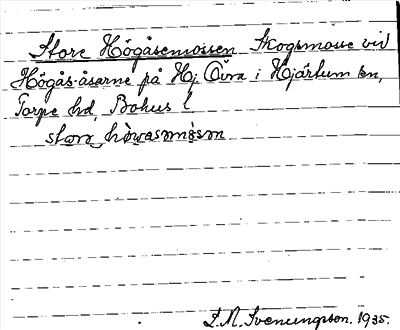 Store Högåsemossen Skogsmosse vid
Högås-åsarne på Hj. Övra i Hjärtum sn,
Torpe hd, Bohus l
storə hö̀wasmòsın
S. A. Svenungson. 1935.